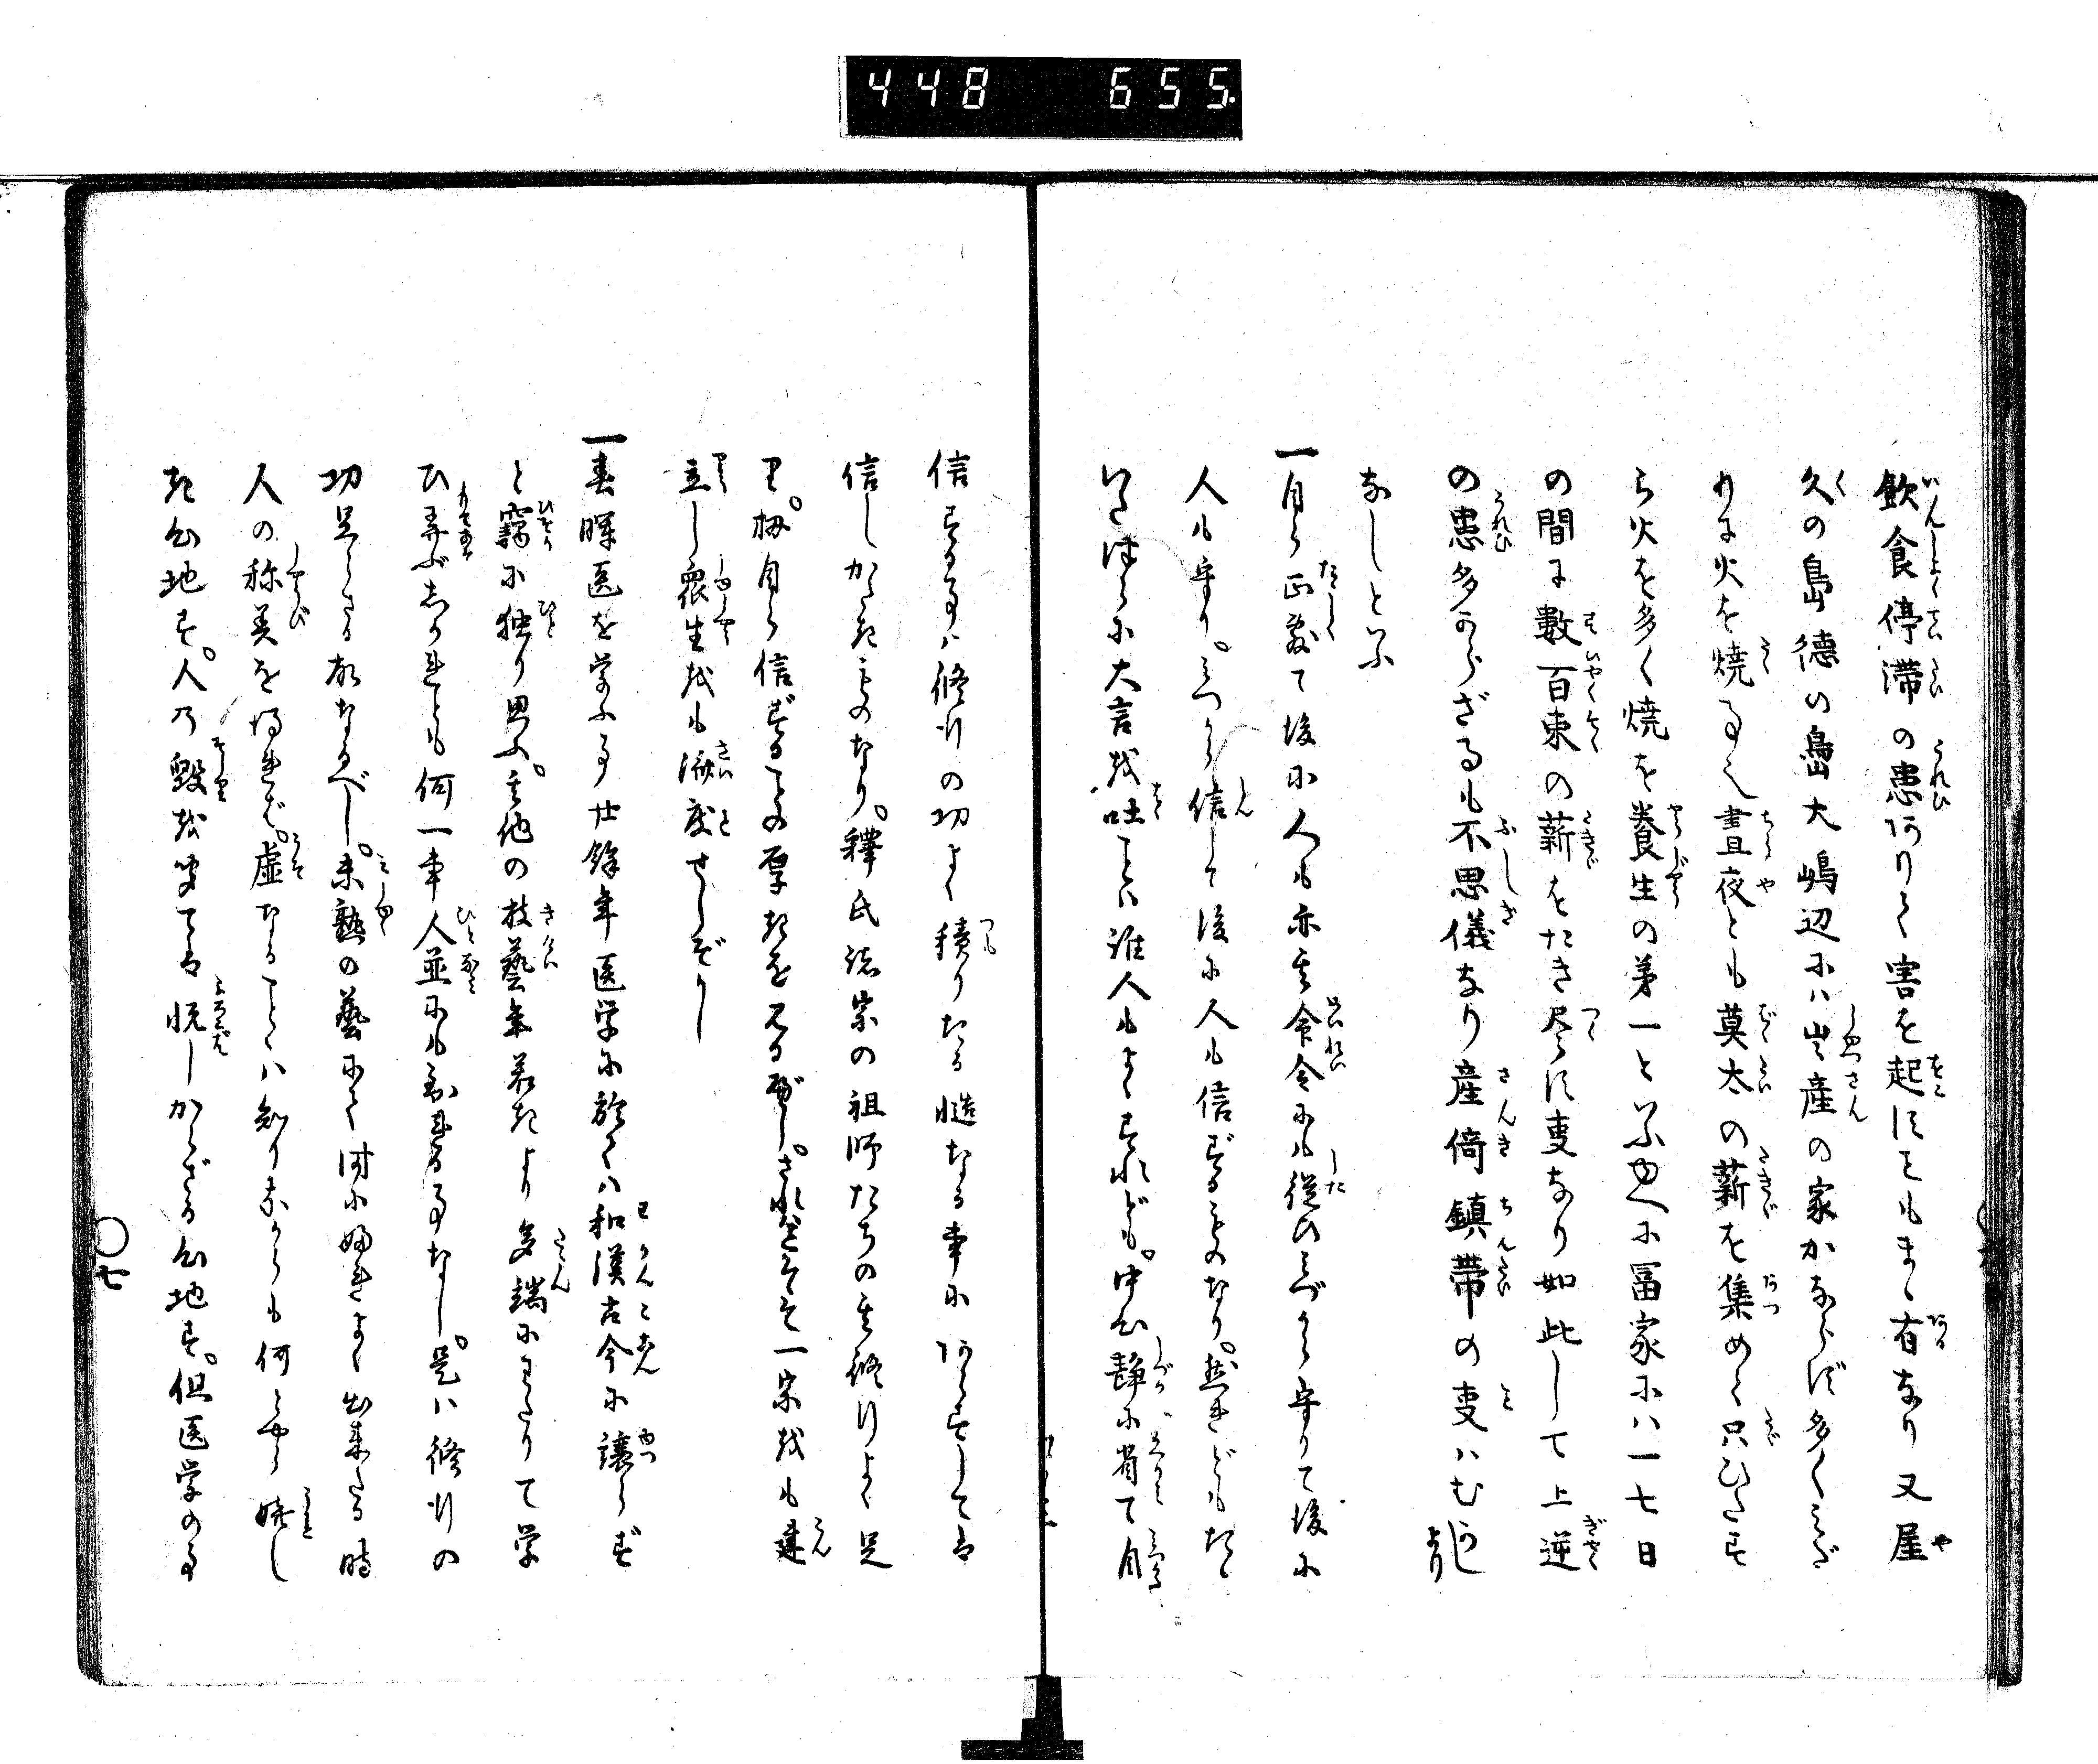 448 655.
飲食停滞の患ありて害を起にもまゝ有なり又屋
久の島徳の島大嶋辺にハ出産の家かならず多くみだ
りに火を焼事也昼夜とも莫太の薪を集めて只ひたす
ら火を多く焼を養生の第一といふ也故に冨家にハ一七日
の間に數百束の薪をたき尽に㕝なり如此して上逆
の患多からざるも不思儀なり産倚鎮帯の㕝ハむかしより
なしといふ
一自ら正敷て後に人も亦其命令にも従ひみづから守りて後に
人も守り。みつから信して後に人も信ずるものなり。然れどもたゝ
いたづらに大言を吐ことハ誰人もよくすれども。中心静に省て自
信する事ハ修行の功よく積りたる慥なる事にあらずしてハ
信しかたきものなり。釋氏諸宗の祖師たちの其修行よく足
り。扨自ら信ずることの厚きを見るべし。されバこそ一宗をも建
立し衆生をも済度せしぞかし
一春暉医を学ふ事廿餘年医学に於てハ和漢古今に譲らず
と竊に独り思ふ。其他の技藝年若きより多端にわたりて学
ひ弄ぶしかれども何一事人並にも勝るゝ事なし。是ハ修行の
功足らさる故なるべし。未熟の藝にて時に如何よく出来たる時
人の称美を得れば。虚なることハ知りながらも何とやら嬉し
き心地す。人の毀を聞てハ悦しからざる心地す。但医学の事
〇七